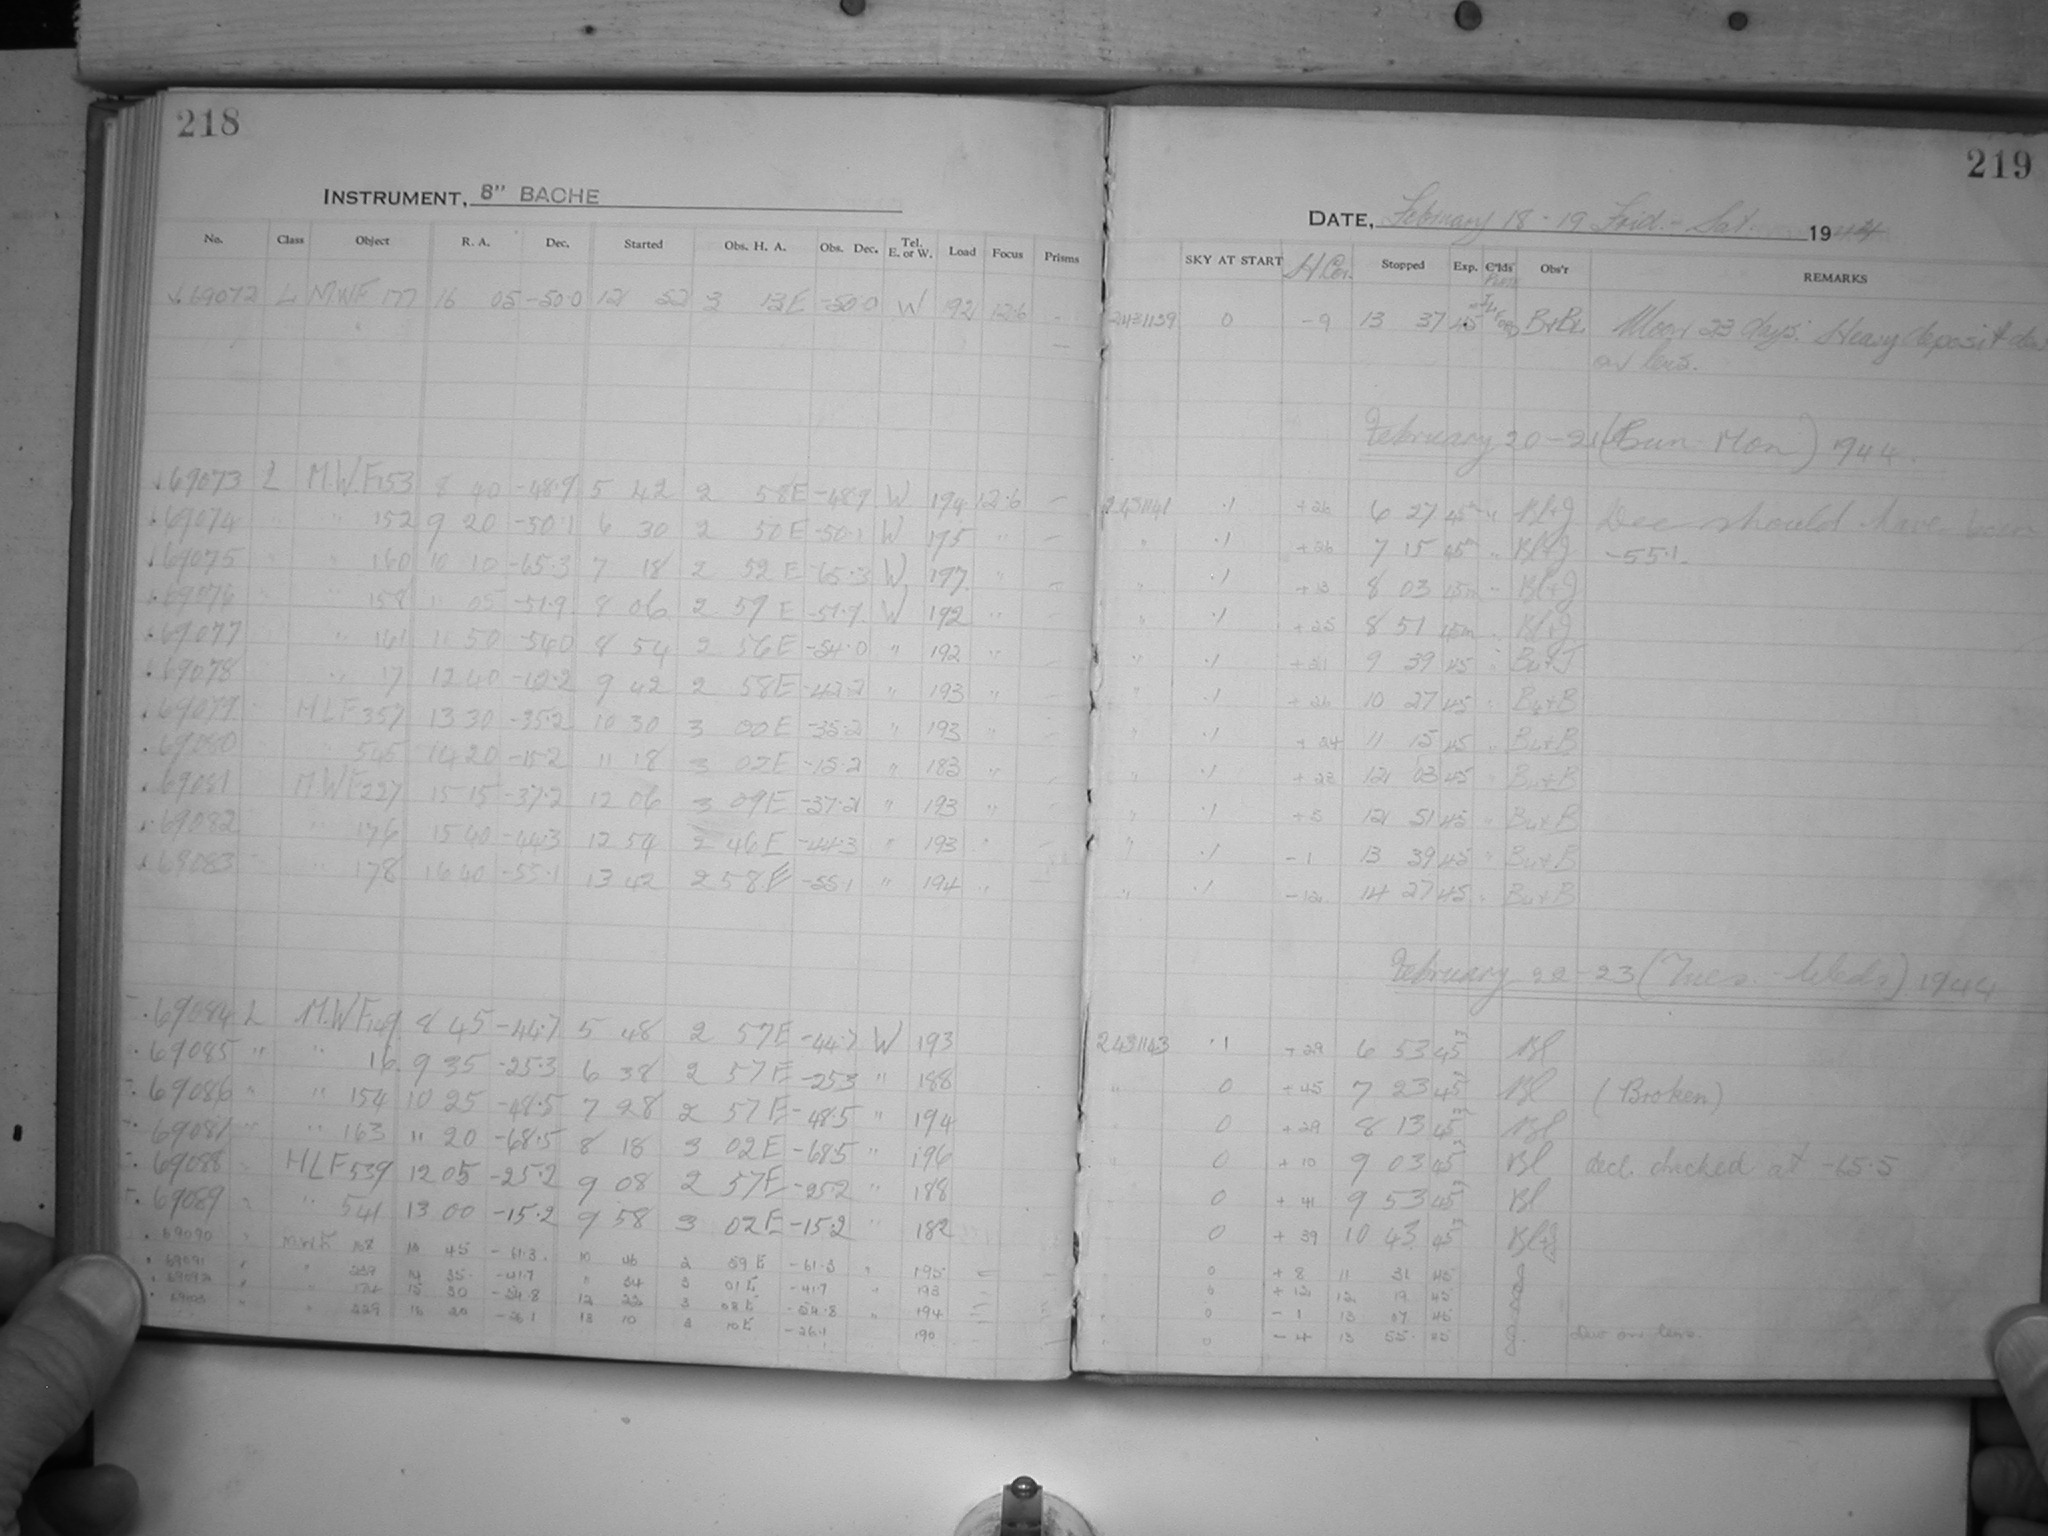 218
INSTRUMENT, 8" BACHE
No. Class Object R. A. Dec. Started Obs. H. A. Obs. Dec. Tel. E. or W. Load Focus Prisms
69072 L MWF 177 16 05 -50.0 12 52 3 13E -50.0 W 192 12.6 -
69073 L M.W.F 153 8 40 -48.9 5 42 2 58E -48.9 W 194 12.6 -
69074 " " 152 9 20 -50.1 6 30 2 50E -50.1 W 175 " -
69075 " 160 10 10 -65.3 7 18 2 52E -65.3 W 197 " -
69076 " 158 11 05 -51.9 8 06 2 59E -51.9 W 192 " -
69077 " 161 11 50 -54.0 8 54 2 56E -54.0 " 192 "
69078 " 17 12 40 9 42 2 58E " 193 " -
69079 HLF 357 13 30 -35.2 10 30 3 00E -35.2 " 193 " -
69080 " 545 14 20 -15.2 11 18 3 02E -15.2 " 183 "
69081 MWF 227 15 15 -37.2 12 06 3 09E -37.2 " 193 "
69082 " 176 15 40 -44.3 12 54 2 46E -44.3 " 193 " -
69083 " 178 16 40 -55.1 13 42 2 58E -55.1 " 194 " -
69084 L M.W.F 149 8 45 -44.7 5 48 2 57E -44.7 W 193
69085 " " 16 9 35 -25.3 6 38 2 57E -25.3 " 188
69086 " " 154 10 25 -48.5 7 28 2 57E -48.5 " 194
69087 " " 163 " 20 -68.5 8 18 3 02E -68.5 " 196
69088 " HLF 539 12 05 -25.2 9 08 2 57E -25.2 " 188
69089 " " 541 13 00 -15.2 9 58 3 02E -15.2 " 182
69090 " MWF 168 45 -61.3 10 46 2 59E -61.3 " 195
69091 " " 239 14 35 -41.7 " 34 3 01E -41.7 193
69092 " " 15 30 -54.8 12 22 3 08E -54.8 " 194
" 229 16 20 -26.1 13 10 3 10E -26.1 190
219
DATE, February 18-19 Frid.-Sat. 1944
SKY AT START H Cor. Stopped Exp. C'lds Obs'r REMARKS
2431139 0 -9 13 37 45 Moon 23 days. Heavy deposit dew
on lens.
February 20-21 (Sun Mon) 1944.
2431141 .1 +26 6 27 45m " Bl+J Dec should have been
" .1 +26 7 15 45m " Bl+J -55.1.
" .1 +13 8 03 45m " Bl+J
" .1 +25 8 51 45m " Bl+J
" .1 +21 9 39 45 "
" .1 +26 10 27 45 "
" .1 +24 11 15 45 "
" .1 +23 12 03 45 "
" .1 +5 12 51 45 "
" .1 -1 13 39 45 "
" .1 -12 14 27 45 "
February 22-23 (Tues.-Weds) 1944
2431143 .1 +29 6 53 45 Bl
" 0 +45 7 23 45 Bl (Broken)
0 +29 8 13 45 Bl
0 +10 9 03 45 Bl decl. checked at -65.5
0 +41 9 53 45 Bl
0 +39 10 43 45 Bl+J
0 +8 11 31 45 J
0 +12 12 19 45
0 -1 13 07 45
0 -4 13 55 45 J. Dew on lens.